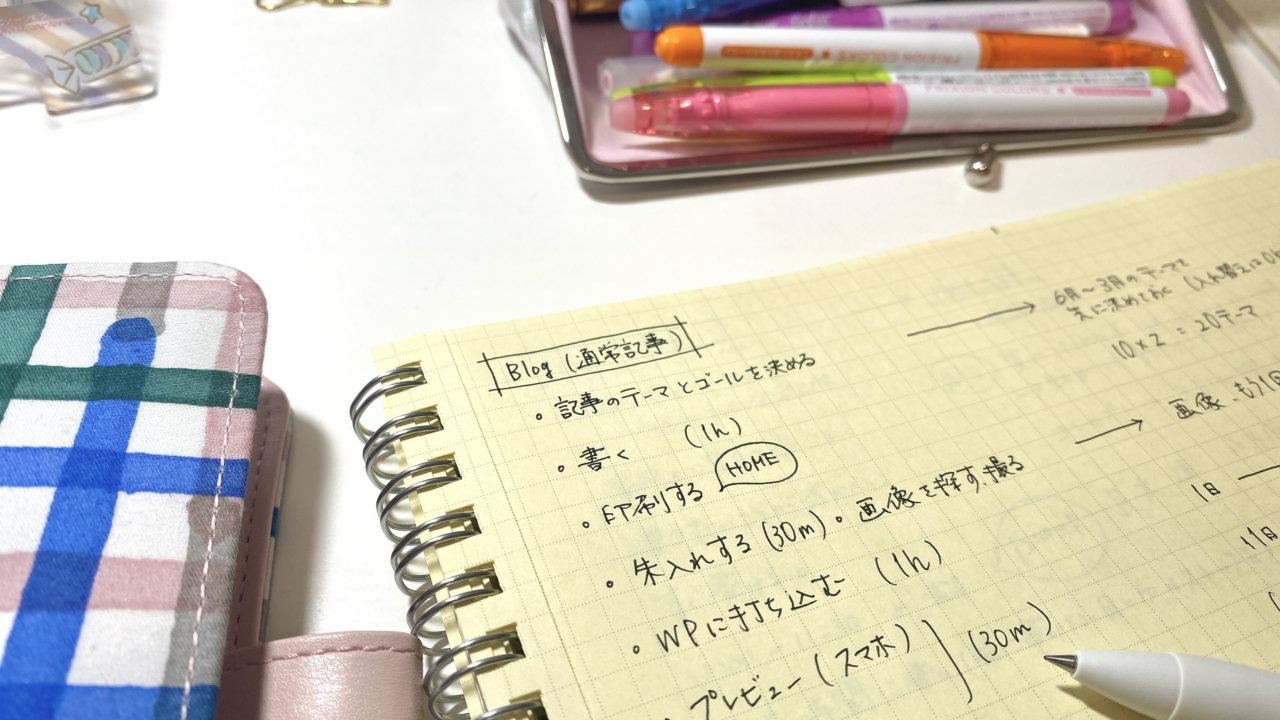 FRIXION COLORS
FRIXION COLORS
Blog (通常記事)
・記事のテーマとゴールを決める
・書く (1h)
・印刷する HOME
・朱入れする (30m)・画像を探す、撮る
・WPに打ち込む (1h)
・プレビュー (スマホ) (30m)
6月〜3月のテーマを
先に決めておく (入れ替えはOK
10×2 = 20テーマ
画像、もう1回
1日
11日